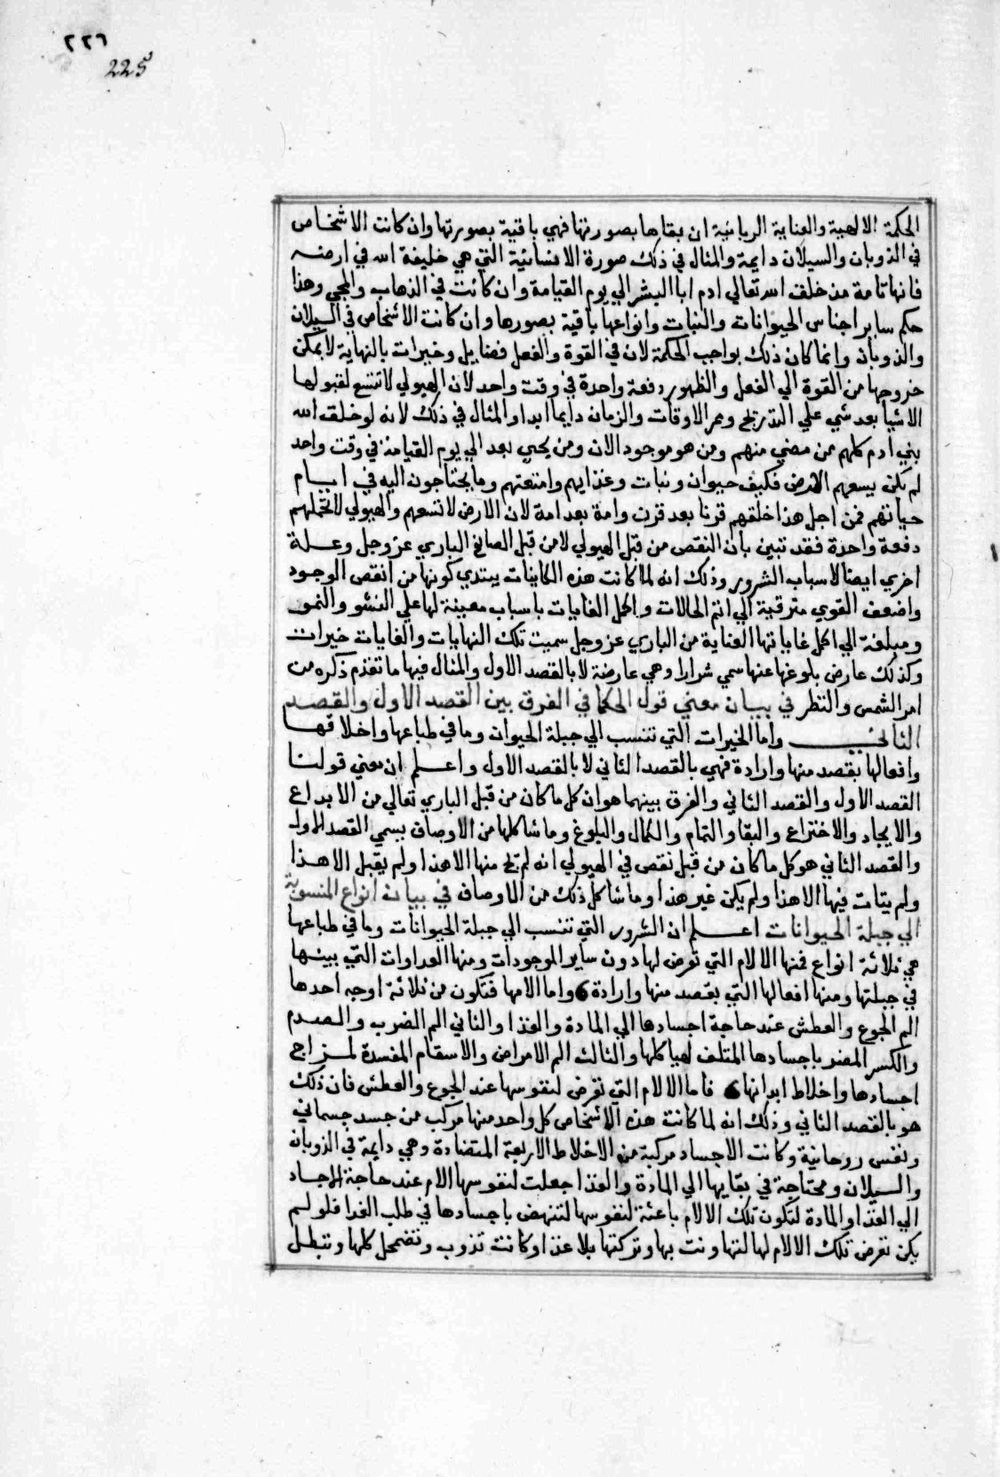 ٢٢٦
225
الحكمة الالهية والعناية الربانية ان بقاها بصورتها فهي باقية بصورتها وان كانت الاشخاص
في الذوبان والسيلان دايمة والمثال في ذلك صورة الانسانية التي هي خليفة الله في ارضه
فانها تامة مذ خلق الله تعالي ادم ابا البشر الي يوم القيامة وان كانت في الذهاب والمجي وهذا
حكم ساير اجناس الحيوانات والنبات وانواعها باقية بصورها وان كانت الاشخاص في السيلان
والذوبان وانما كان ذلك بواجب الحكمة لان في القوة والفعل فضايل وخيرات بالنهاية لا يمكن
خروجها من القوة الي الفعل والظهور دفعة واحدة في وقت واحد لان الهيولي لا تتسع لقبولها
الاشيا بعد شي علي التدريج وممر الاوقات والزمان دايما ابدا والمثال في ذلك لانه لو خلق الله
بني ادم كلهم من مضي منهم ومن هو موجود الان ومن يجي بعد الي يوم القيامة في وقت واحد
لم يكن يسعهم الارض فكيف حيوان ونبات وغذايهم وامتعتهم وما يحتاجون اليه في ايام
حياتهم فمن اجل هذا خلقهم قرنا بعد قرن وامة بعد امة لان الارض لا تسعهم والهيولي لا تحملهم
دفعة واحدة فقد تبين بان النقص من قبل الهيولي لا من قبل الصانع الباري عز وجل وعلة
اخري ايضا لاسباب الشرور وذلك انه لما كانت هذه الكاينات يبتدي كونها من انقص الوجود
واضعف القوي مترقية الي اتم الحالات واكمل الغايات باسباب معينة لها علي النشو والنمو
ومبلغة الي اكمل غاياتها العناية من الباري عز وجل سميت تلك النهايات والغايات خيرات
وكذلك عارض بلوغها عنها سمي شرارا وهي عارضة لا بالقصد الاول والمثال فيها ما تقدم ذكره من
امر الشمس والنظر في بيان معني قول الحكما في الفرق بين القصد الاول والقصد
الثاني واما الخيرات التي تنسب الي جبلة الحيوان وما في طباعها واخلاقها
وافعالها بقصد منها وارادة فهي بالقصد الثاني لا بالقصد الاول واعلم ان معني قولنا
القصد الاول والقصد الثاني والفرق بينهما هو ان كل ما كان من قبل الباري تعالي من الابداع
والايجاد والاختراع والبقا والتمام والكمال والبلوغ وما شاكلها من الاوصاف يسمي القصد الاول
والقصد الثاني هو كل ما كان من قبل نقص في الهيولي انه لم يج منها الا هذا ولم يقبل الا هذا
ولم يتات فيها الا هذا ولم يكن غير هذا وما شاكل ذلك من الاوصاف في بيان انواع المنسوبة
الي جبلة الحيوانات اعلم ان الشرور التي تنسب الي جبلة الحيوانات وما في طباعها
هي ثلاثة انواع فمنها الالام التي تعرض لها دون ساير الموجودات ومنها العداوات التي بينها
في جبلتها ومنها افعالها التي بقصد منها وارادة واما الامها فتكون من ثلاثة اوجه احدها
الم الجوع والعطش عند حاجة اجسادها الي المادة والغذا والثاني الم الضرب والصدم
والكسر المضر باجسادها المتلف لهياكلها والثالث الم الامراض والاسقام المفسدة لمزاج
اجسادها واخلاط ابدانها فاما الالام التي تعرض لنفوسها عند الجوع والعطش فان ذلك
هو بالقصد الثاني وذلك انه لما كانت هذه الاشخاص كل واحد منها مركب من جسد جسماني
ونفس روحانية وكانت الاجساد مركبة من الاخلاط الاربعة المتضادة وهي دايمة في الذوبان
والسيلان ومحتاجة في بقايها الي المادة والغذا جعلت لنفوسها الالام عند حاجة الاجساد
الي الغذا والمادة لتكون تلك الالام باعثة لنفوسها لتنهض باجسادها في طلب الغذا فلو لم
يكن تعرض تلك الالام لها لتهاونت بها وتركتها بلا غذا وكانت تذوب وتضمحل كلها وتبطل